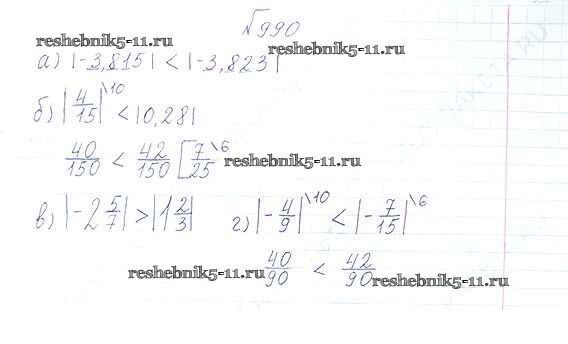 √990
reshebnik5-11.ru
а) |-3,815| < |-3,823|
б) |4/15|\10 < |0,28|
40/150 < 42/150 [7/25\6 reshebnik5-11.ru
в) |-2 5/7| > |1 2/3| г) |-4/9|\10 < |-7/15|\6
reshebnik5-11.ru 40/90 < 42/90 reshebnik5-11.ru